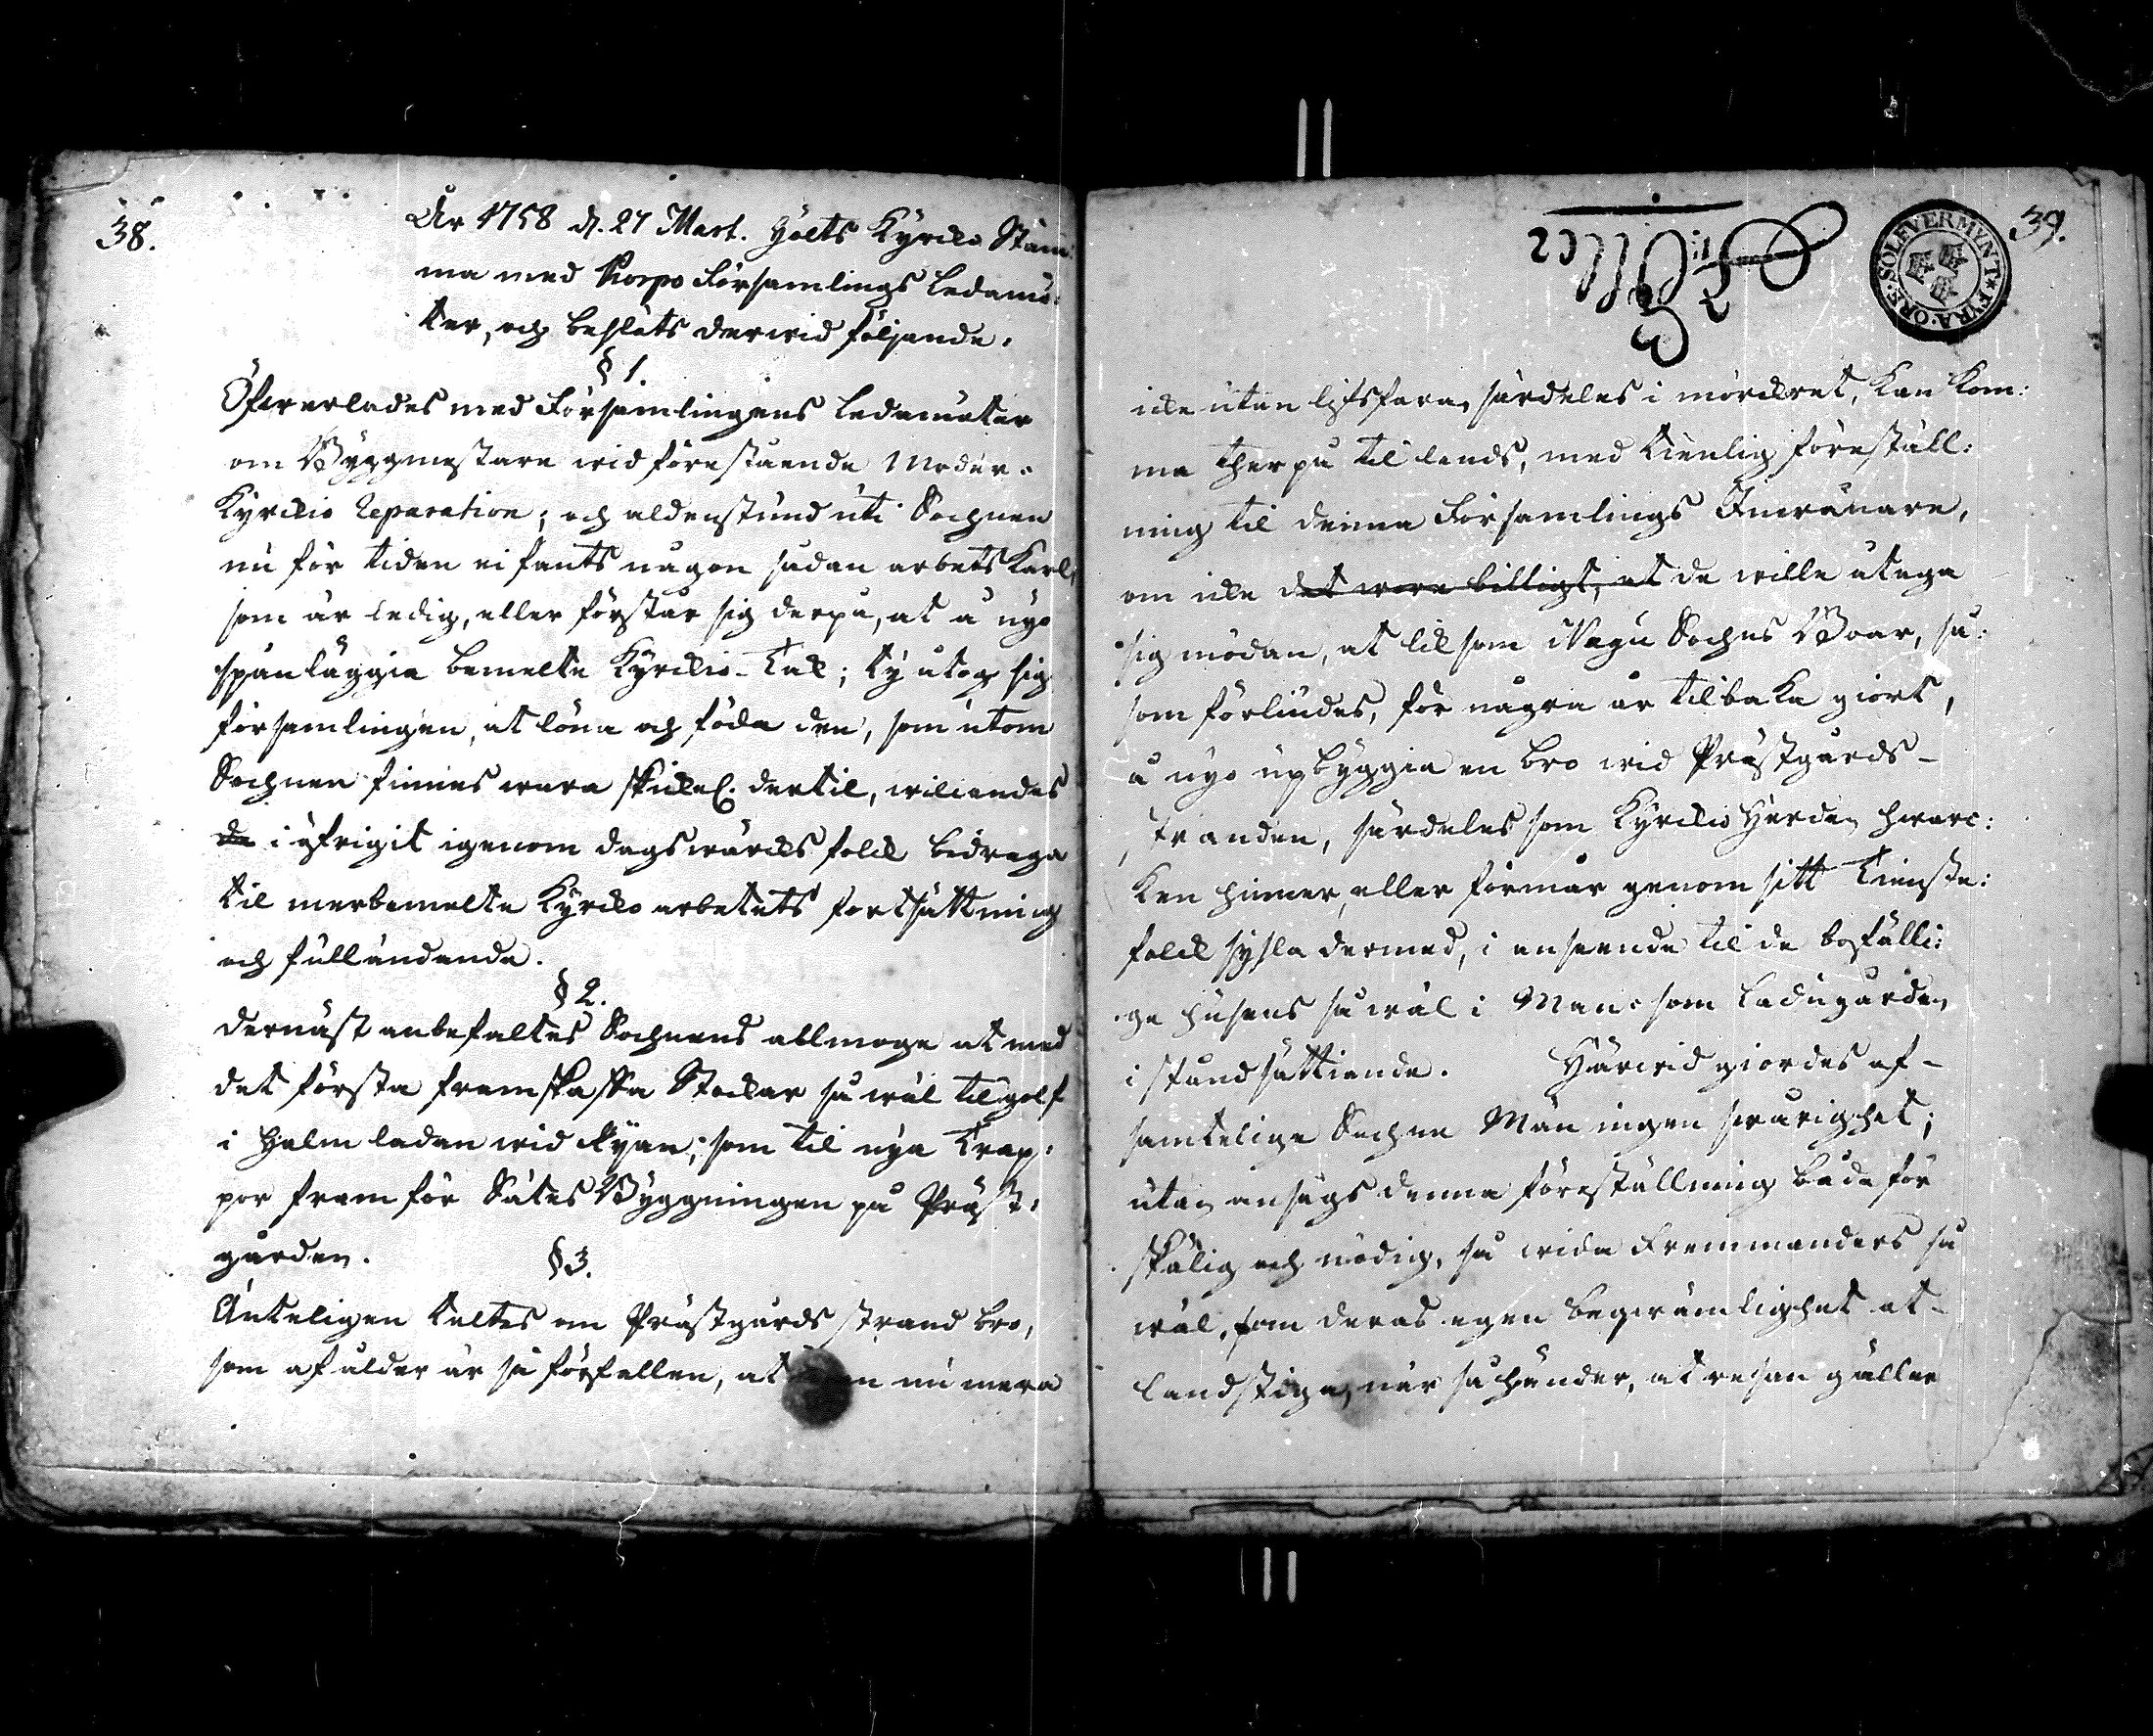 38.
År 1758 d. 27 Mart. Hölts Kyrckio Stäm:
ma med Korpo Församlings Ledamö:
ter, och beslöts derwid följande.
§ 1.
Öfwerlades med Församlingens Ledamöter
om Byggmestare wid förestående Moder-
Kyrckio Reparation; och aldenstund uti Sochnen
nu för tiden ei fants någon sådan arbets Karl,
som är ledig, eller förstår sig derpå, at å nyo
spånläggia bemelte Kyrckio-Tak; ty åtog sig
församlingen, at löna och föda den, som utom
Sochnen finnes wara skickel. dertil, williandes
de i öfrigit igenom dagswärcks folck bidraga
til merbemelte Kyrckio arbetets fortsättning
och fulländande.
§ 2.
Dernäst anbefaltes Sochnens allmoge at med
det första framskaffa Stockar så wäl til golf
i Halm ladan wid Ryan; som til nya Trap:
por fram för Sätes Byggningen på Präst:
gården.
§ 3.
Änteligen taltes om Prästgårds strand bro,
som af ålder är så förfallen, at n nu mera
39.
SOLFVERMYNT * FYRA · ÖRE ·
icke utan lifsfara, särdeles i mörckret, kan kom:
ma ther på til lands, med tienlig föreställ:
ning til denna Församlings Inwånare,
om icke det wore billigt, at de wille åtaga
sig mödan, at lik som Nagu Sochns Boar, så:
som förliudes, för några år tilbaka giort,
å nyo upbyggia en bro wid Prästgårds-
stranden, särdeles som Kyrckio Herden hwarc:
ken hinner, eller förmår genom sitt Tienste:
folck syssla dermed, i anseende til de bofälli:
ge husens så wäl i Man- som Ladugården
i stånd sättiande. Härwid giordes af-
samtelige Sochne Män ingen swårighet;
utan ansågs denna föreställning både för
skälig och nödig, så wida Fremmanders så
wäl, som deras egen beqwämlighet at-
landstiga, när så händer, at resan gäller